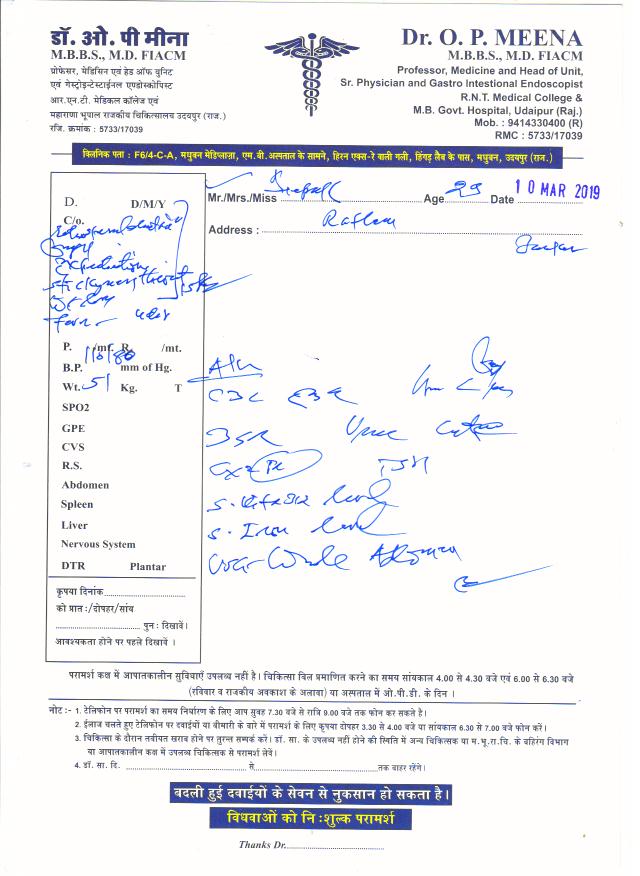 डॉ. ओ. पी मीना
M.B.B.S., M.D. FIACM
प्रोफेसर, मेडिसिन एवं हेड ऑफ युनिट
एवं गेस्ट्रोइन्टेस्टाईनल एण्डोस्कोपिस्ट
आर.एन.टी. मेडिकल कॉलेज एवं
महाराणा भूपाल राजकीय चिकित्सालय उदयपुर (राज.)
रजि. क्रमांक : 5733/17039
Dr. O. P. MEENA
M.B.B.S., M.D. FIACM
Professor, Medicine and Head of Unit,
Sr. Physician and Gastro Intestional Endoscopist
R.N.T. Medical College &
M.B. Govt. Hospital, Udaipur (Raj.)
Mob. : 9414330400 (R)
RMC : 5733/17039
क्लिनिक पता : F6/4-C-A, मधुबन मेडिप्लाज़ा, एम.बी.अस्पताल के सामने, हिरन एक्स-रे वाली गली, हिंगड़ लैब के पास, मधुबन, उदयपुर (राज.)
Mr./Mrs./Miss Age 29 Date 10 MAR 2019
Address :
D. D/M/Y
C/o.
P. /mt. R. /mt.
B.P. 110/80 mm of Hg.
Wt. 51 Kg. T
SPO2
GPE
CVS
R.S.
Abdomen
Spleen
Liver
Nervous System
DTR Plantar
CBC
TSH
S. level
S. Iron level
Whole Abdomen
कृपया दिनांक
को प्रातः/दोपहर/सांय
पुनः दिखावें।
आवश्यकता होने पर पहले दिखावें ।
परामर्श कक्ष में आपातकालीन सुविधाएँ उपलब्ध नहीं है। चिकित्सा बिल प्रमाणित करने का समय सांयकाल 4.00 से 4.30 बजे एवं 6.00 से 6.30 बजे
(रविवार व राजकीय अवकाश के अलावा) या अस्पताल में ओ.पी.डी. के दिन ।
नोट :- 1. टेलीफोन पर परामर्श का समय निर्धारण के लिए आप सुबह 7.30 बजे से रात्रि 9.00 बजे तक फोन कर सकते है।
2. ईलाज चलते हुए टेलीफोन पर दवाईयों या बीमारी के बारे में परामर्श के लिए कृपया दोपहर 3.30 से 4.00 बजे या सांयकाल 6.30 से 7.00 बजे फोन करें।
3. चिकित्सा के दौरान तबीयत खराब होने पर तुरन्त सम्पर्क करें। डॉ. सा. के उपलब्ध नहीं होने की स्थिति में अन्य चिकित्सक या म.भू.रा.चि. के बहिरंग विभाग
या आपातकालीन कक्ष में उपलब्ध चिकित्सक से परामर्श लेवें।
4. डॉ. सा. दि. से तक बाहर रहेंगे।
बदली हुई दवाईयों के सेवन से नुकसान हो सकता है।
विधवाओं को निःशुल्क परामर्श
Thanks Dr.